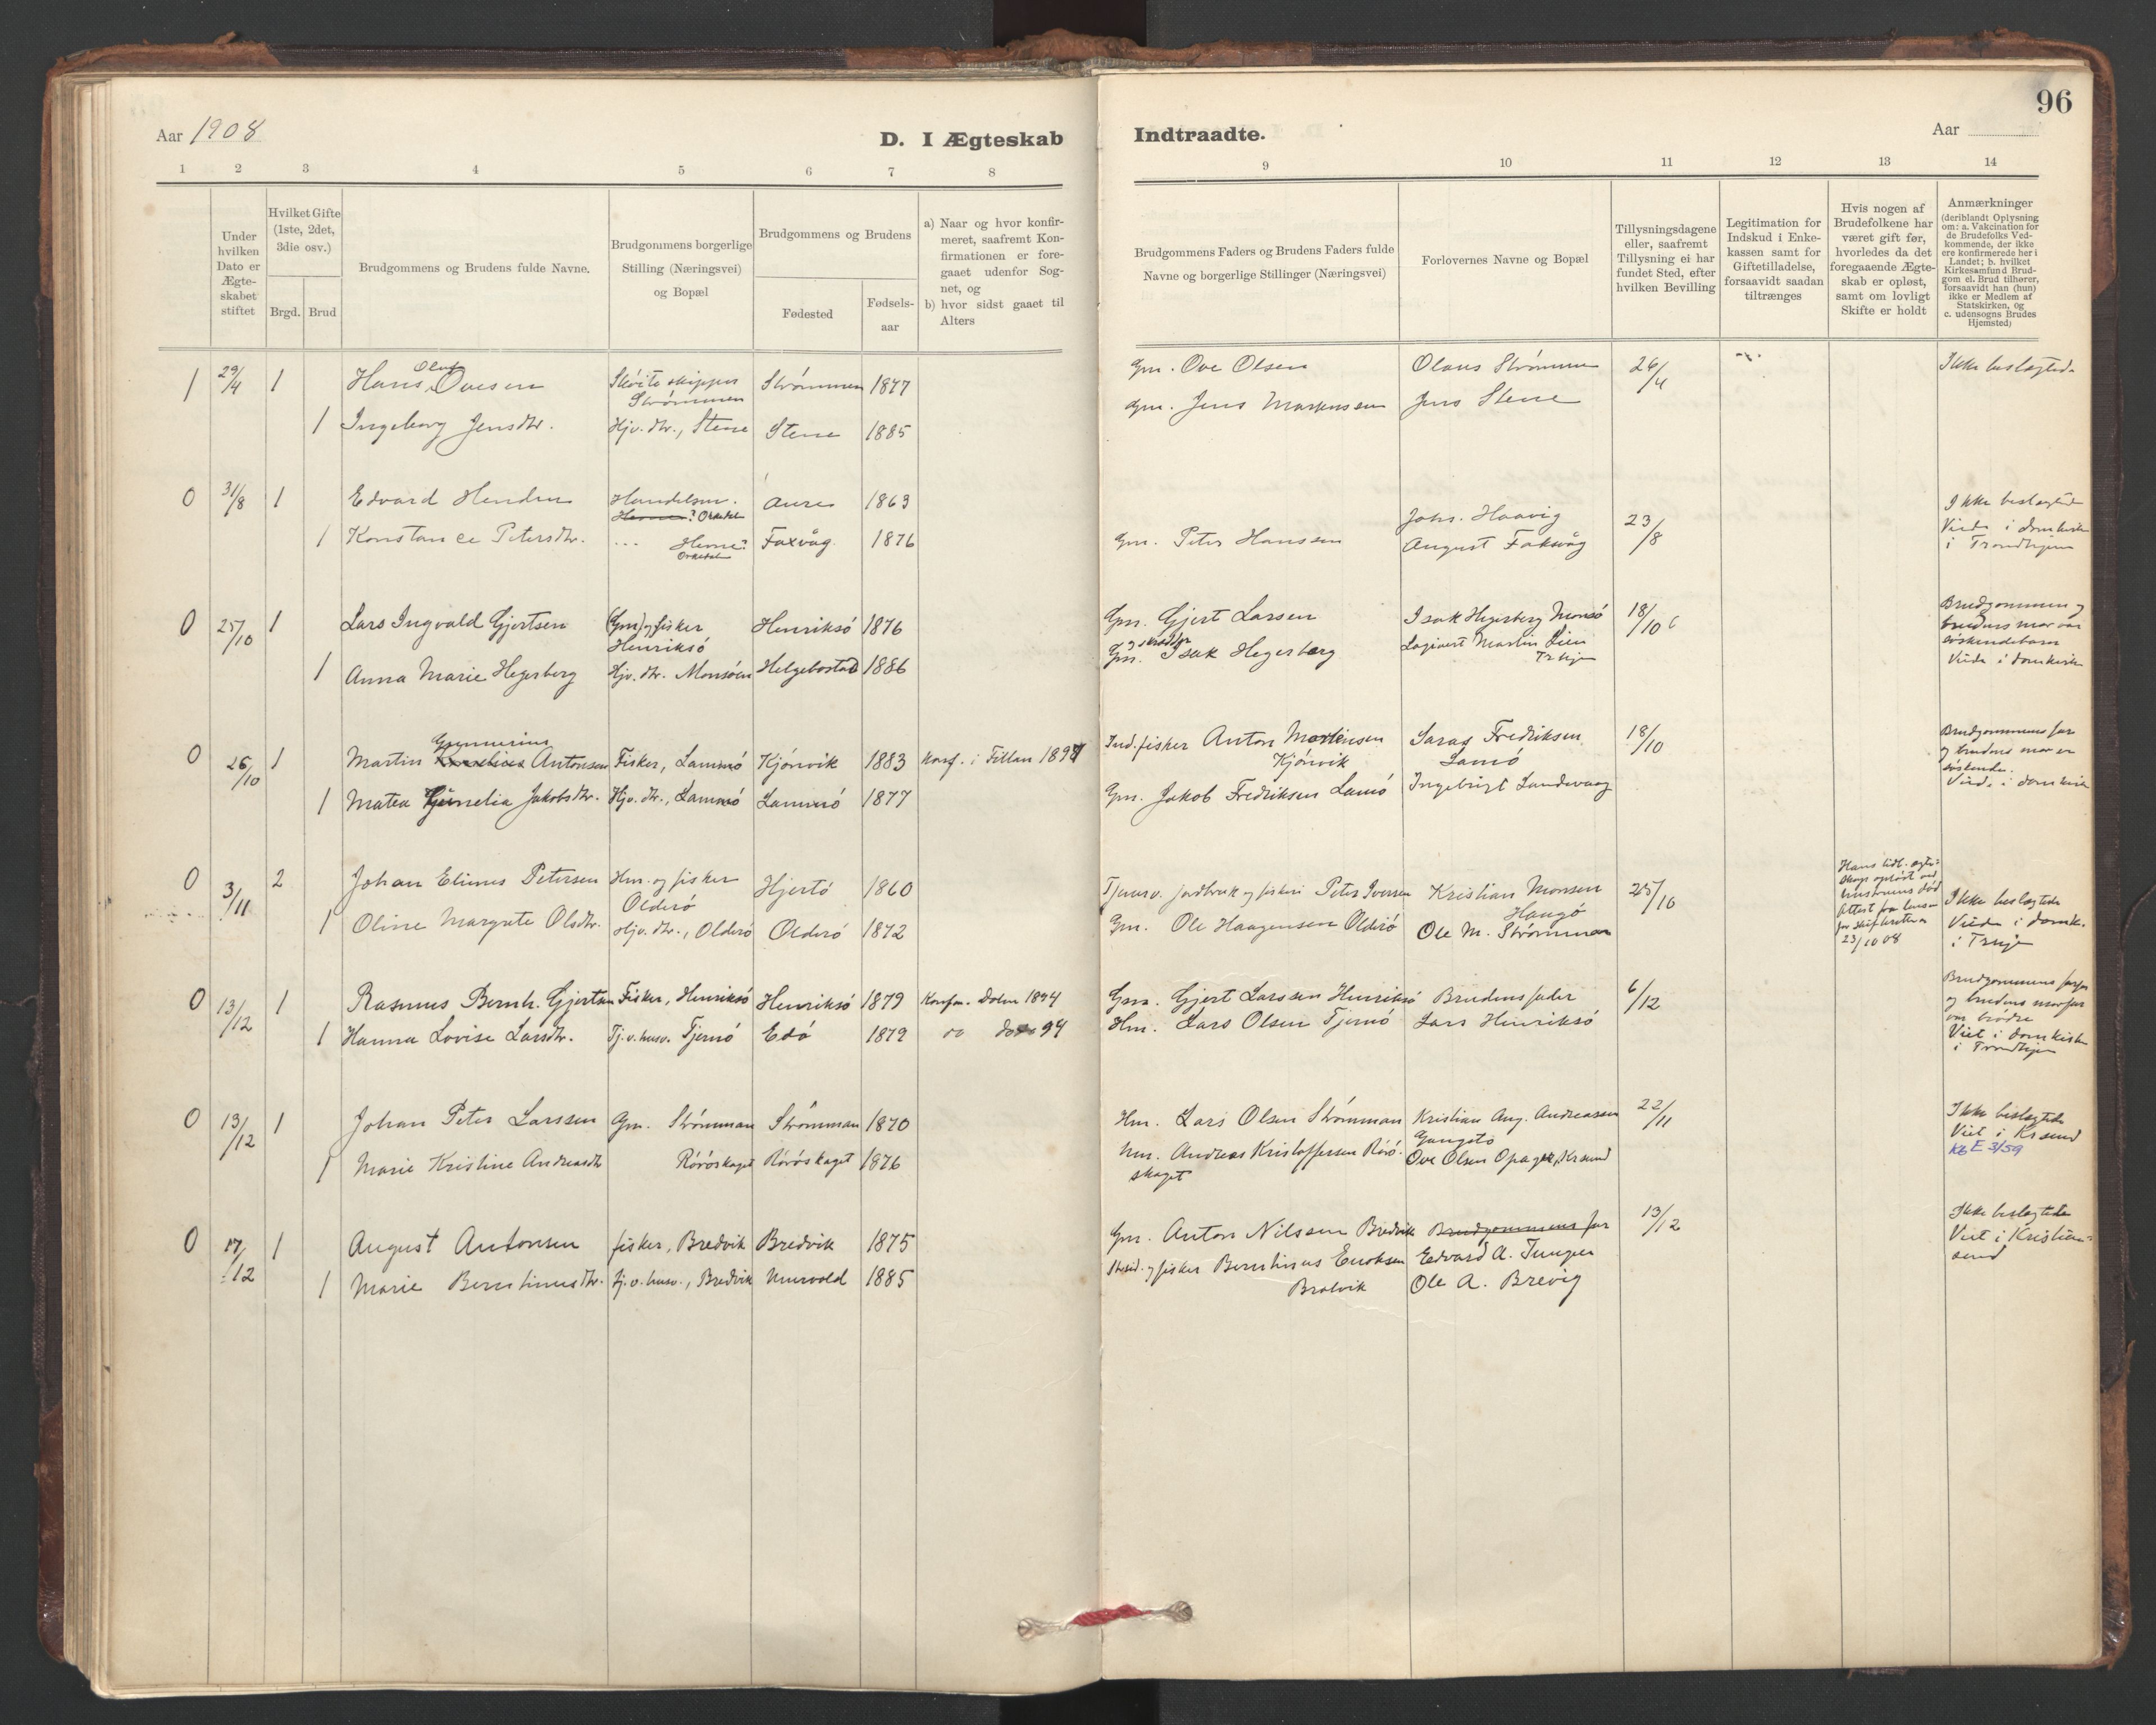 96
Aar 1908
D. I Ægteskab
Indtraadte.
Aar
1 2 3 4 5 6 7 8
9 10 11 12 13 14
Under hvilken Dato er Ægte-skabet stiftet
Hvilket Gifte (1ste, 2det, 3die osv.)
Brgd. Brud
Brudgommens og Brudens fulde Navne.
Brudgommens borgerlige Stilling (Næringsvei) og Bopæl
Brudgommens og Brudens
Fødested
Fødsels-aar
a) Naar og hvor konfir-meret, saafremt Kon-firmationen er fore-gaaet udenfor Sog-net, og
b) hvor sidst gaaet til Alters
Brudgommens Faders og Brudens Faders fulde Navne og borgerlige Stillinger (Næringsvei)
Forlovernes Navne og Bopæl
Tillysningsdagene eller, saafremt Tillysning ei har fundet Sted, efter hvilken Bevilling
Legitimation for Indskud i Enke-kassen samt for Giftetilladelse, forsaavidt saadan tiltrænges
Hvis nogen af Brudefolkene har været gift før, hvorledes da det foregaaende Ægte-skab er opløst, samt om lovligt Skifte er holdt
Anmærkninger
(deriblandt Oplysning om: a. Vakcination for de Brudefolks Ved-kommende, der ikke ere konfirmerede her i Landet; b. hvilket Kirkesamfund Brud-gom el. Brud tilhører, forsaavidt han (hun) ikke er Medlem af Statskirken, og c. udensogns Brudes Hjemsted)
1 29/4 1 Hans Oluf Ovesen Skøiteskipper Strømmen Strømmen 1877 Gm. Ove Olsen Olaus Strømmen 26/4 Ikke beslægtede
1 Ingeborg Jensdtr. Hjv. dtr., Stene Stene 1885 Gm. Jens Markussen Jens Stene
0 31/8 1 Edvard Henden Handelsm. Hevne? Orkedal Aure 1863 Johs. Haavig 23/8 Ikke beslægtede
1 Konstance Petersdtr. ... Hevne? Orkedal Faxvåg 1876 Gm. Peter Hanssen August Faksvåg Viede i domkirken i Trondhjem
0 25/10 1 Lars Ingvald Gjertsen (Gm) og fisker Henriksö Henriksö 1876 Gm. Gjert Larsen Isak Hegerberg Monsö 18/10 Brudgommen og brudens mor var söskendebarn
1 Anna Marie Hegerberg Hjv. dtr. Monsöen Helgebostad 1886 Gm. og skrædder Isak Hegerberg Logivert Martin Lien Trhjem Viede i domkirken
0 26/10 1 Martin Gunnerius Antonsen Fisker, Lammö Kjönvik 1883 Konf. i Fillan 1898 Ind. fisker Anton Mortensen Kjönvik Saras Fredriksen Lamö 18/10 Brudgommens far og brudens mor er söskende.
1 Matea Jakobsdtr. Hjv. dtr., Lammö Lammö 1877 Gm. Jakob Fredriksen Lamö Ingebrigt Sandvaag Vied. i domkirken
0 3/11 2 Johan Elinus Petersen Hm. og fisker Olderö Hjertö 1860 Tjenesv. jordbruk og fiskeri Peter Iversen Kristian Monsen Haugö 25/10 Hans tidl. ægte-skap oplöst ved hustruens död Attest fra lensm for skifteretten 23/10 08 Ikke beslægtede
1 Oline Margrete Olsdtr. Hjv. dtr., Olderö Olderö 1872 Gm. Ole Haagensen Olderö Ole M. Strömmen Viede i domk. i Trhjem
0 13/12 1 Rasmus Bernh. Gjertsen Fisker, Henriksö Henriksö 1879 Konfm. Dolm 1894 Gm. Gjert Larssen Henriksö Brudens fader 6/12 Brudgommens farfar og brudens morfar var brödre
1 Hanna Lovise Larsdtr. Tj. v. husv. Tjernö Edö 1879 do 94 Hm. Lars Olsen Tjernö Lars Hinriksö Viet i domkirken i Trondhjem
0 13/12 1 Johan Peter Larssen Gm. Strömman Strömman 1870 Hm. Lars Olsen Strömman Kristian Aug. Andreassen 22/11 Ikke beslegtede
1 Marie Kristine Andreasdtr Röröskaget Röröskaget 1876 Hm. Andreas Kristoffersen Röröskaget Ove Olsen Opager, Krsund Viet i Krsund
Kb E 3/59
0 17/12 1 August Antonsen fisker, Bredvik Bredvik 1875 Gm. Anton Nilssen Bredvik Brudgommens far Edvard A. 13/12 Ikke beslegtede
1 Marie Bernhinusdtr. tj. v. husv., Bredvik Murvold 1885 og fisker Bernhinus Enoksen Bralvik Ole A. Brevig Viet i Kristian-sund